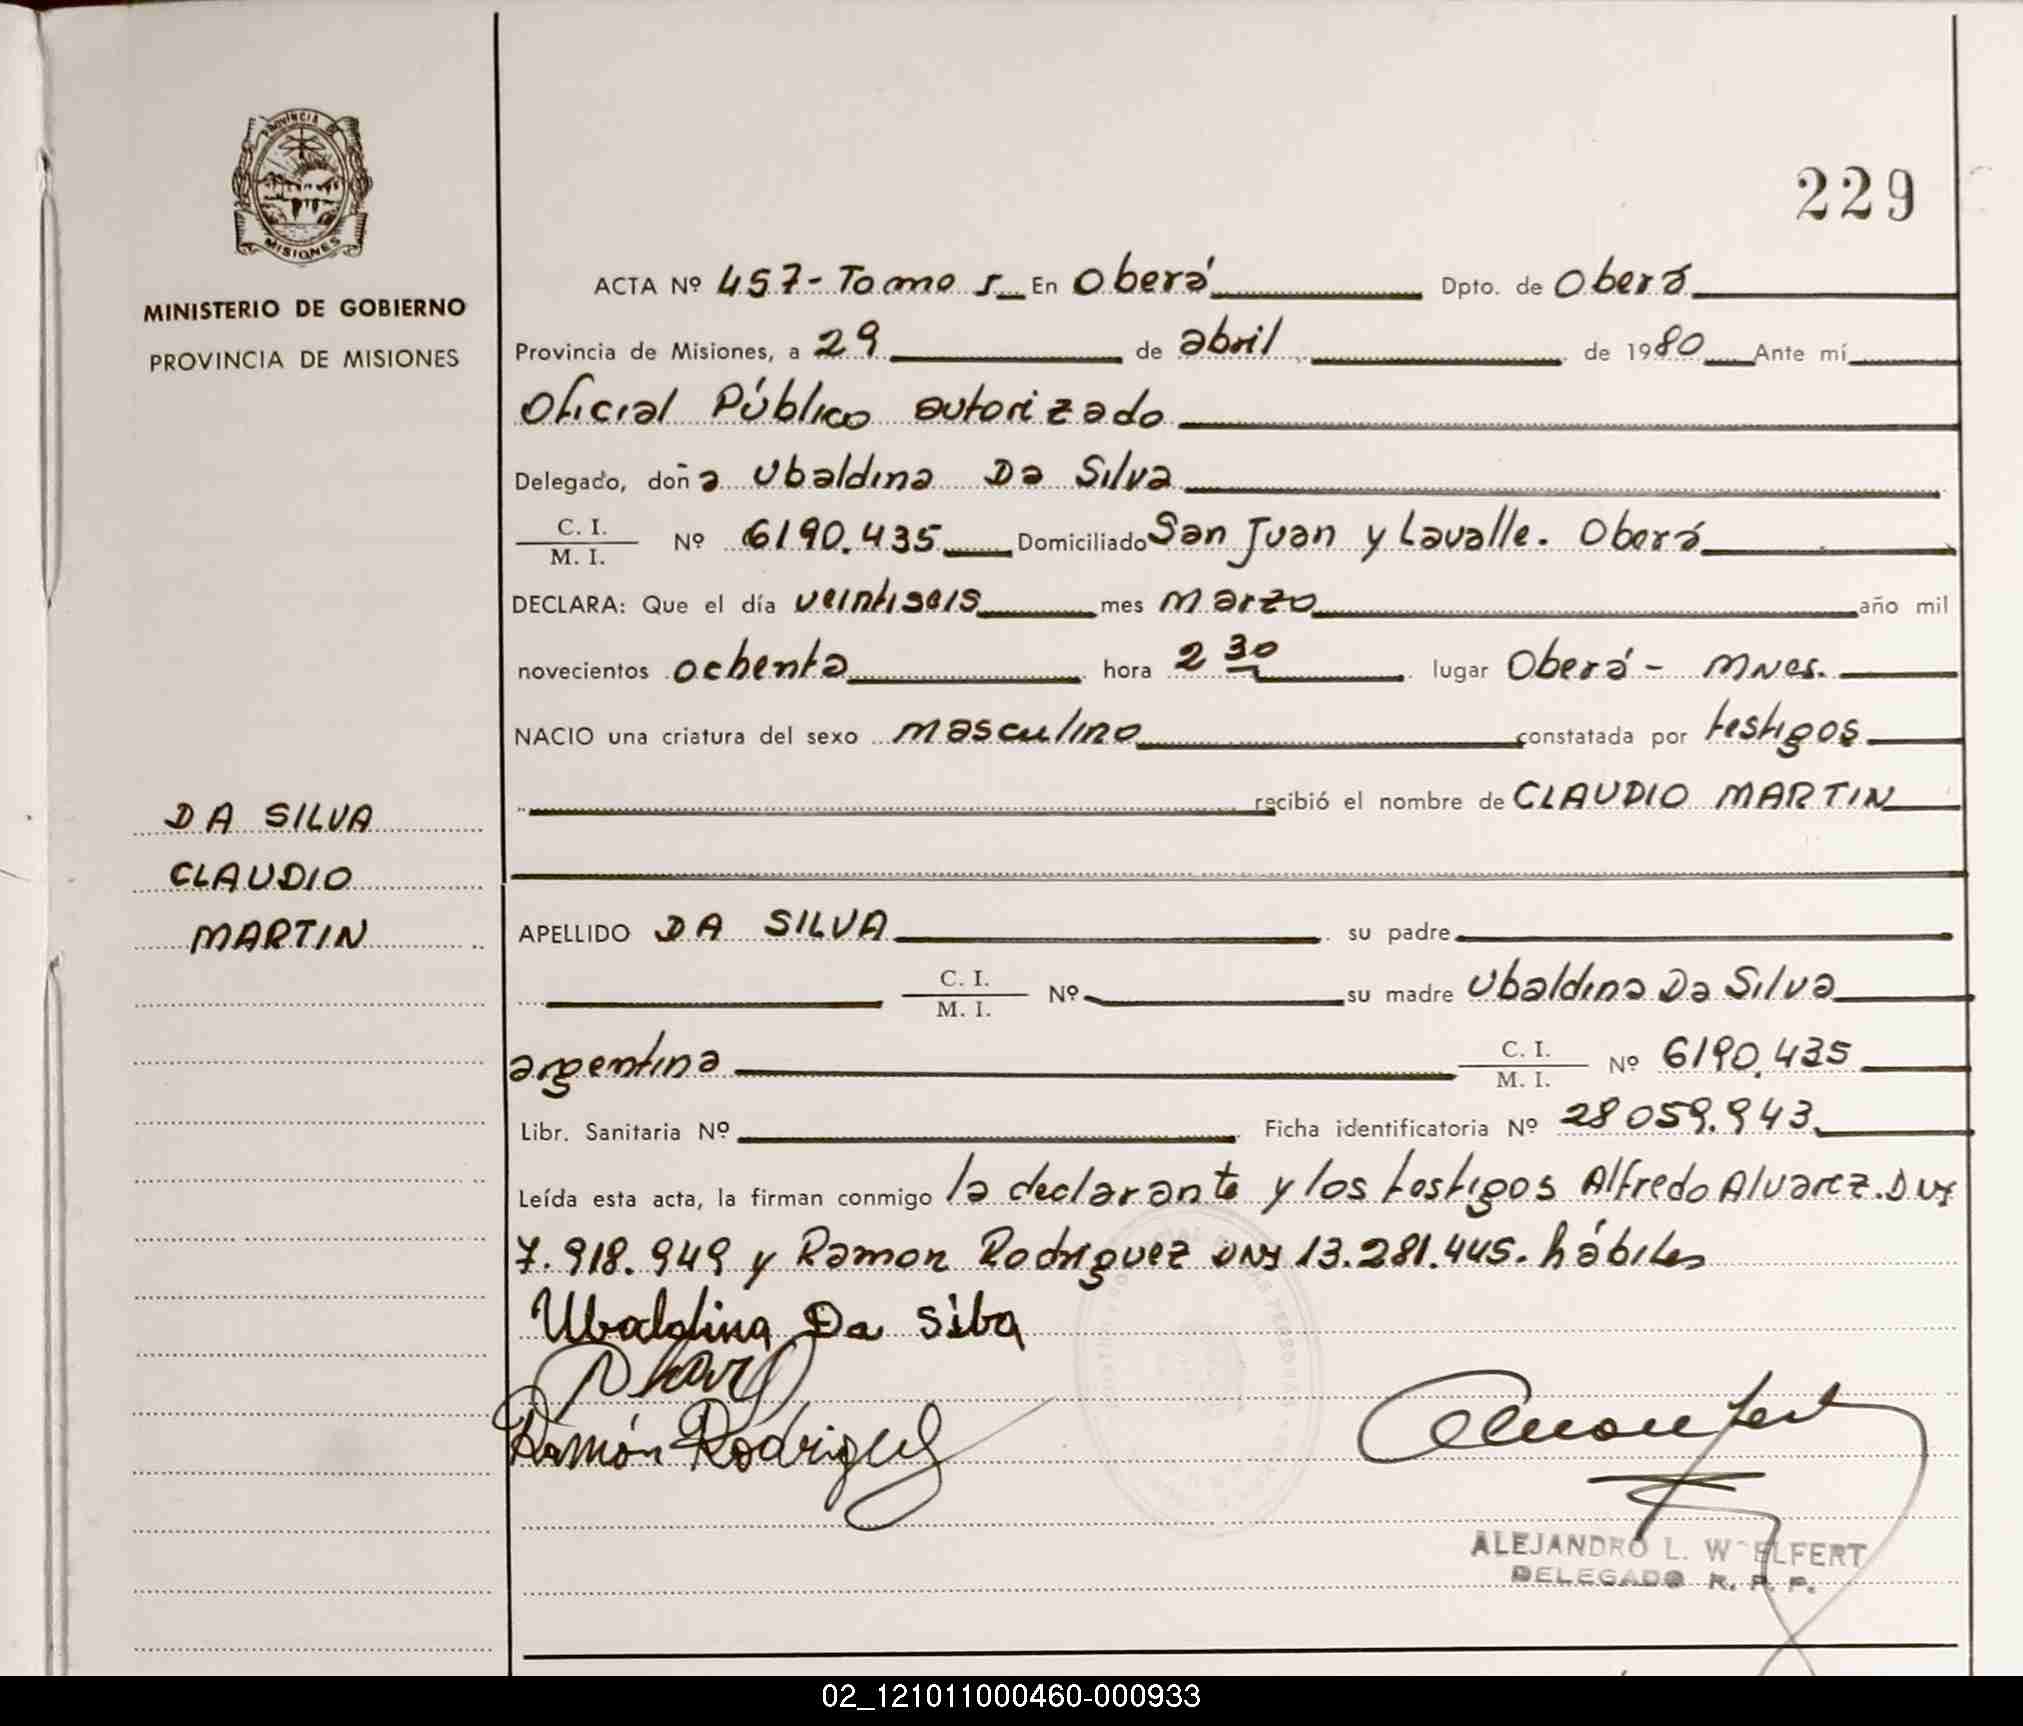 PROVINCIA DE
MISIONES
MINISTERIO DE GOBIERNO
PROVINCIA DE MISIONES
229
ACTA Nº 457- Tomo 5 En Oberá Dpto. de Oberá
Provincia de Misiones, a 29 de abril de 1980 Ante mí
Oficial Público autorizado
Delegado, doña Ubaldina Da Silva
C. I.
M. I. Nº 6190.435 Domiciliado San Juan y Lavalle. Oberá
DECLARA: Que el día veintiseis mes marzo año mil
novecientos ochenta hora 2 30 lugar Oberá - Mnes.
NACIO una criatura del sexo masculino constatada por testigos
recibió el nombre de CLAUDIO MARTIN
DA SILVA
CLAUDIO
MARTIN
APELLIDO DA SILVA su padre
C. I.
M. I. Nº su madre Ubaldina Da Silva
argentina C. I.
M. I. Nº 6190.435
Libr. Sanitaria Nº Ficha identificatoria Nº 28059.943.
Leída esta acta, la firman conmigo la declarante y los testigos Alfredo Alvarez. DNI
7.918.949 y Ramon Rodriguez DNI 13.281.445. hábiles
Ubaldina Da Silba
Ramón Rodriguez
ALEJANDRO L. W ELFERT
DELEGADO R. P. P.
02_121011000460-000933